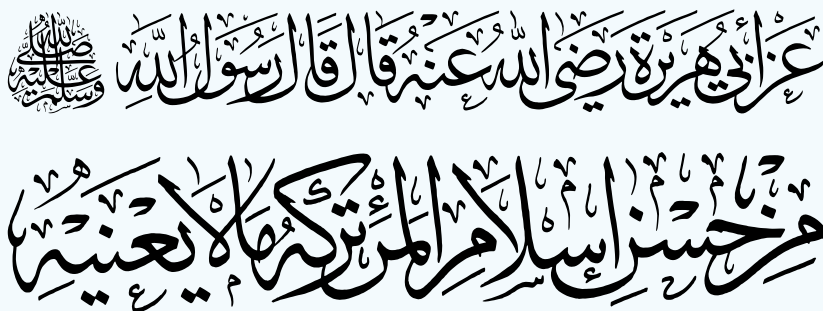 عَنْ أَبِي هُرَيْرَةَ رَضِيَ اللهُ عَنْهُ قَالَ قَالَ رَسُولُ اللهِ صلى الله عليه وسلم
مِنْ حُسْنِ إِسْلَامِ الْمَرْءِ تَرْكُهُ مَا لَا يَعْنِيهِ